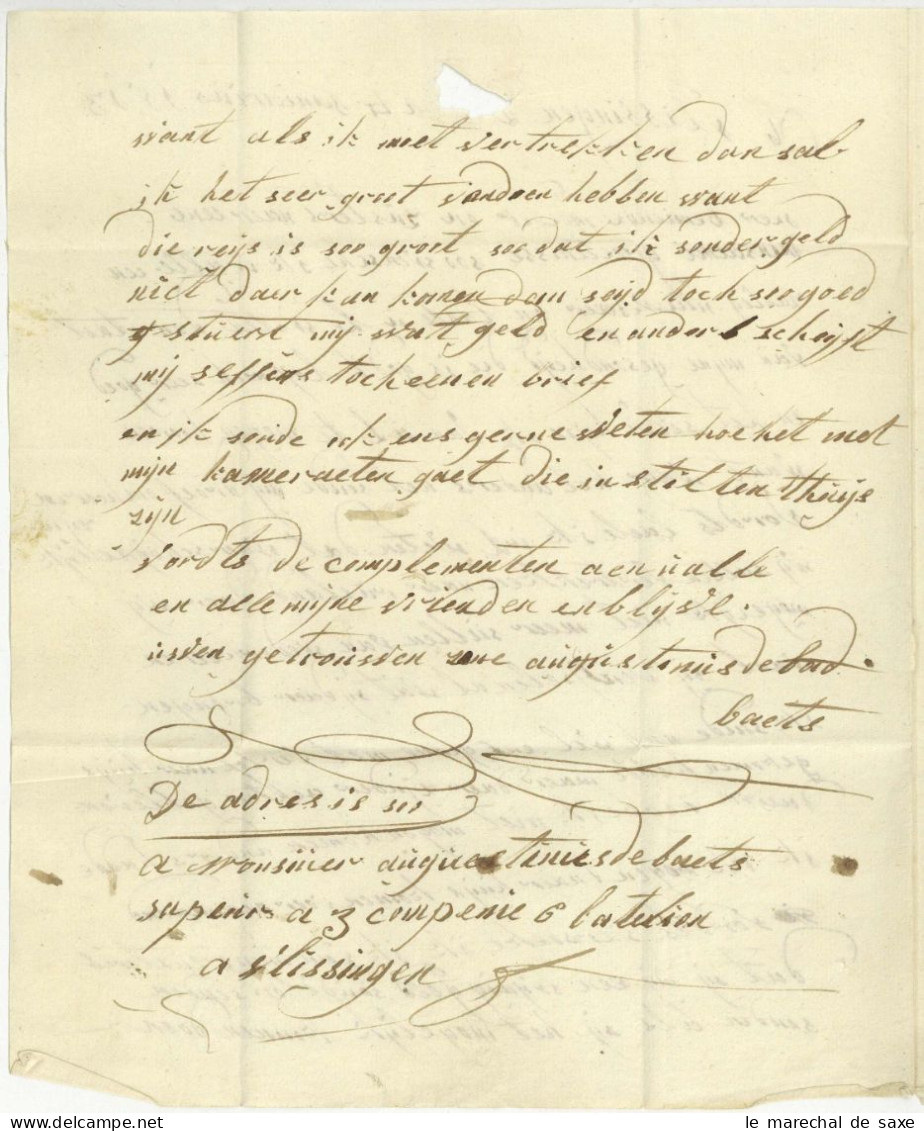 want als ik moet vertrekken dan sal
ik het seer groot vandoen hebben want
die reijs is soo groot soo dat ik sonder geld
niet daer kan komen dan seijd toch soo goed
stuert mij wat geld en anders schrijft
mij seffens toch eenen brief
en ik sonde ok ens gerne weten hoe het met
mijn kameraeten gaet die in stilten thuijs
zijn
vordts de complementen aen u alle
en alle mijne vrienden en blijve
uwen getrouwen zone augustinus de bad
baets
De adres is
a monsiuer augustinus de baets
sapeurs a 3 compenie 6 batelion
a vlissingen
le marechal de saxe